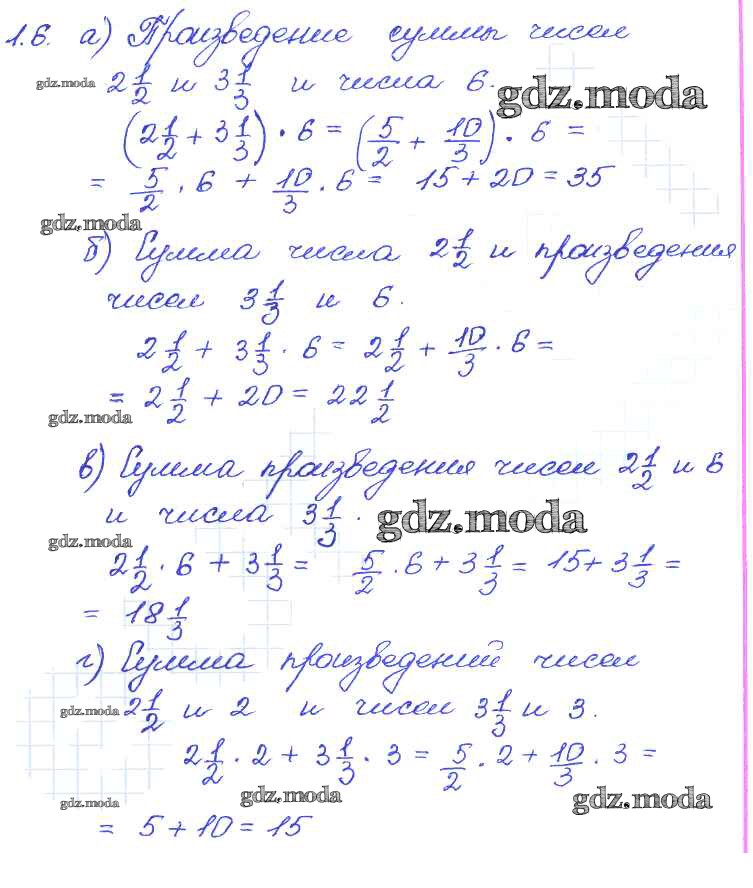 1.6. а) Произведение суммы чисел
gdz.moda 2 1/2 и 3 1/3 и числа 6. gdz.moda
(2 1/2 + 3 1/3) · 6 = (5/2 + 10/3) · 6 =
= 5/2 · 6 + 10/3 · 6 = 15 + 20 = 35
gdz.moda
б) Сумма числа 2 1/2 и произведения
чисел 3 1/3 и 6.
2 1/2 + 3 1/3 · 6 = 2 1/2 + 10/3 · 6 =
= 2 1/2 + 20 = 22 1/2
gdz.moda
в) Сумма произведения чисел 2 1/2 и 6
и числа 3 1/3. gdz.moda
gdz.moda
2 1/2 · 6 + 3 1/3 = 5/2 · 6 + 3 1/3 = 15 + 3 1/3 =
= 18 1/3
г) Сумма произведений чисел
gdz.moda 2 1/2 и 2 и чисел 3 1/3 и 3.
2 1/2 · 2 + 3 1/3 · 3 = 5/2 · 2 + 10/3 · 3 =
gdz.moda gdz.moda gdz.moda
= 5 + 10 = 15